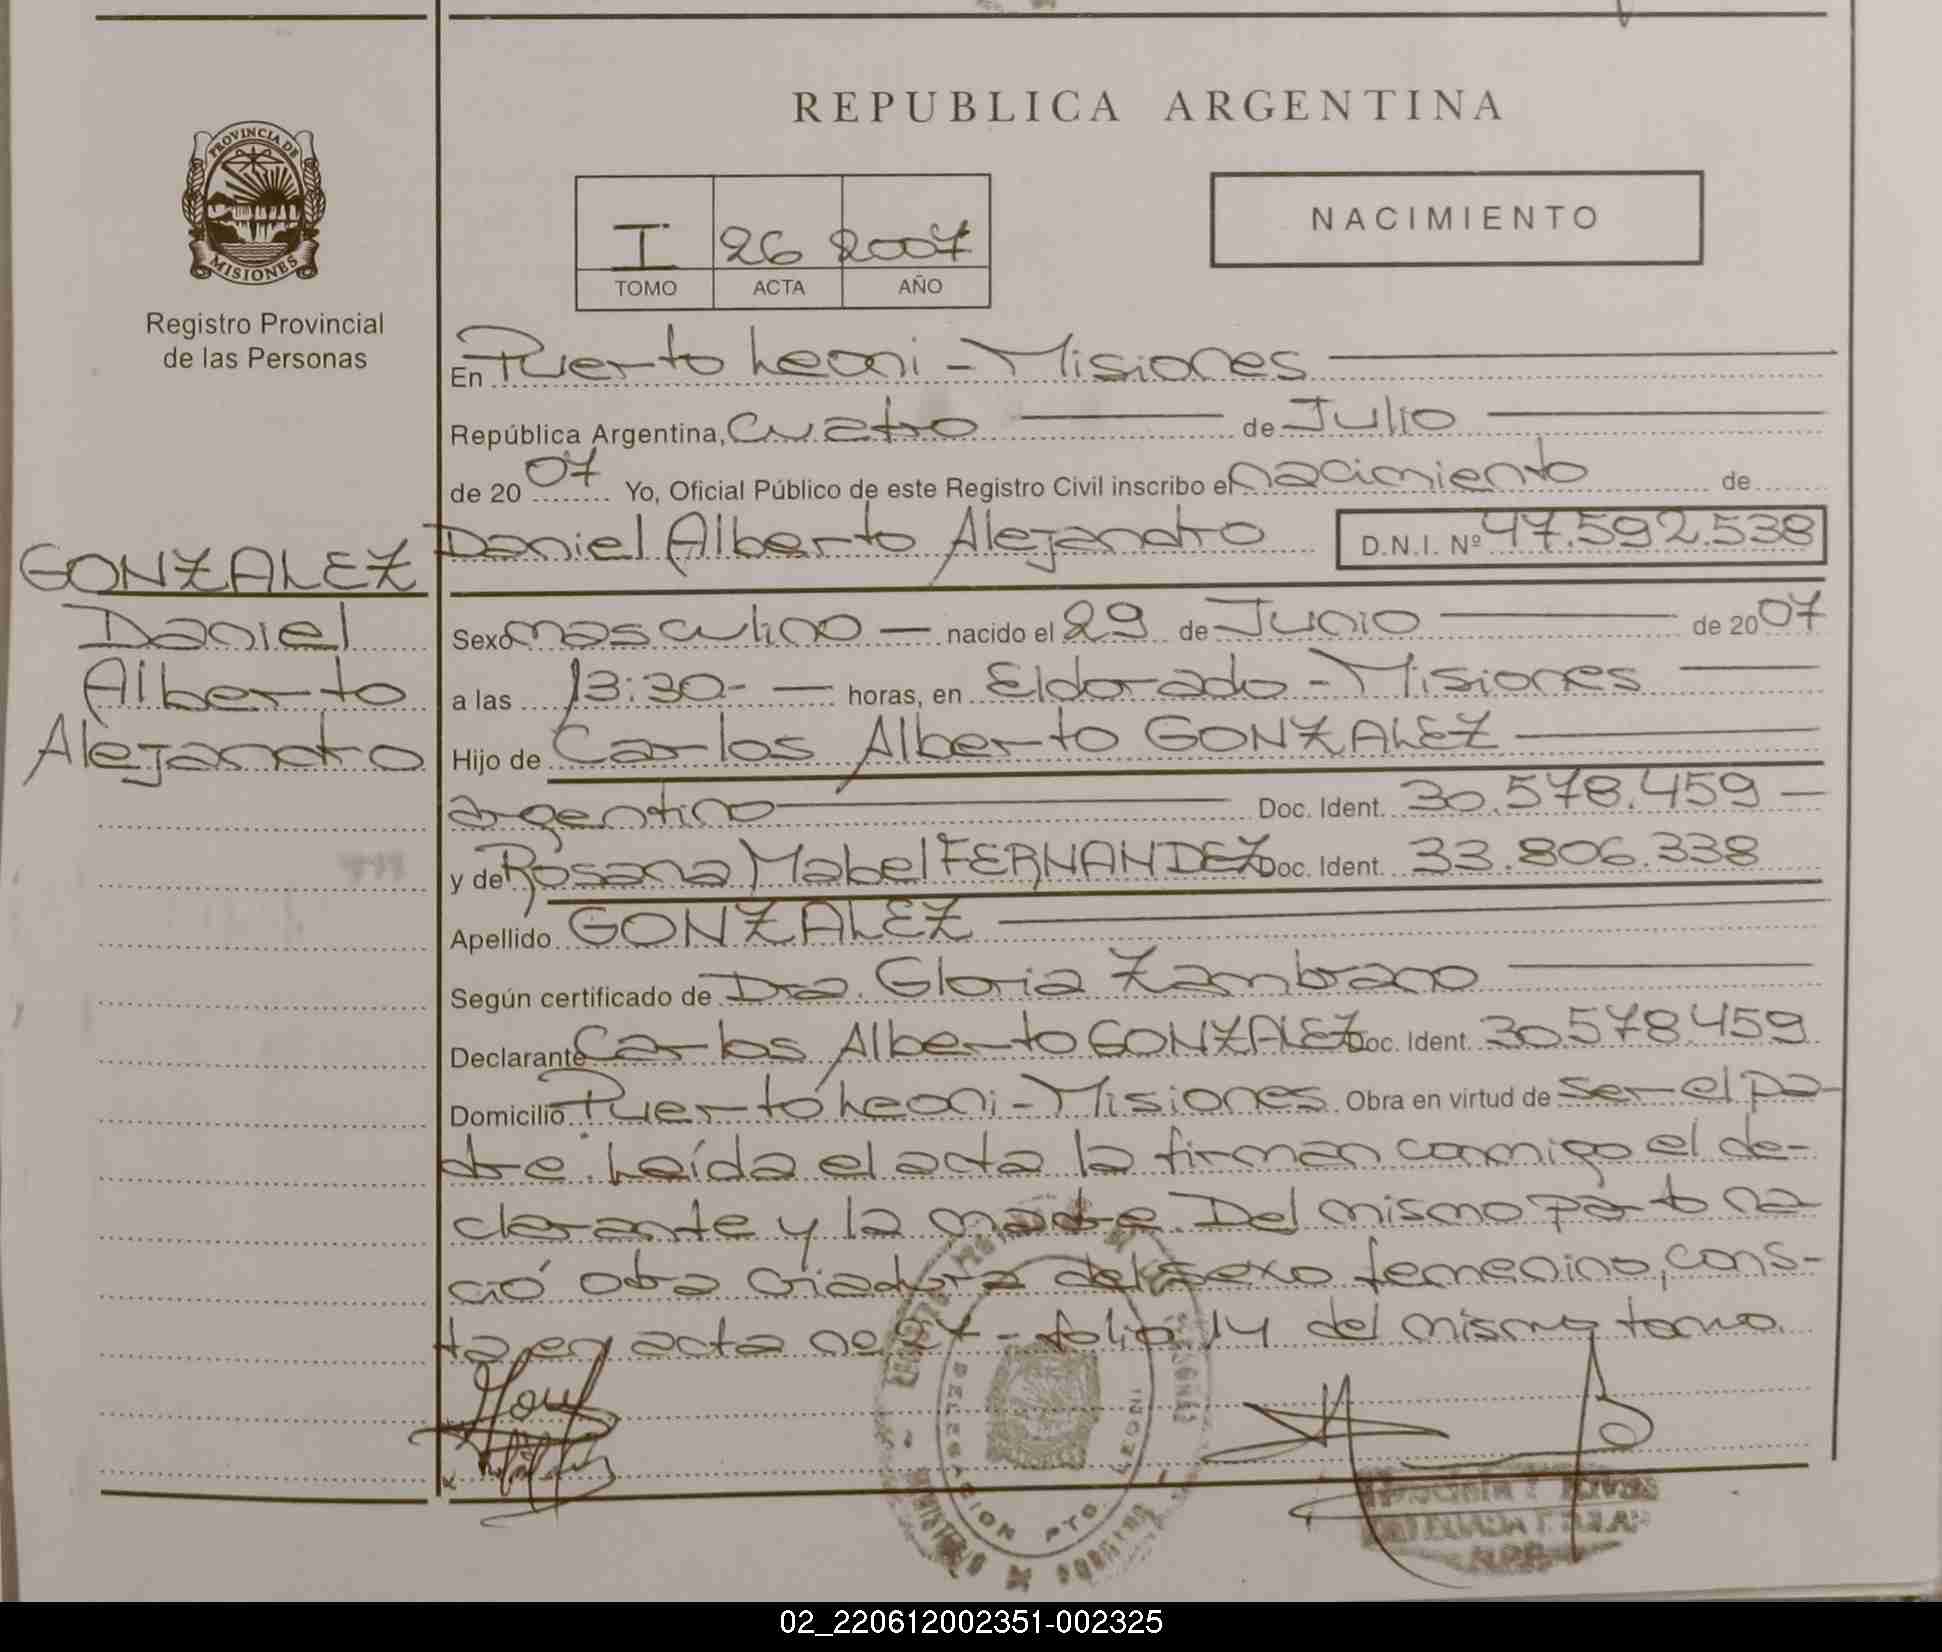 REPUBLICA ARGENTINA
PROVINCIA DE
MISIONES
Registro Provincial
de las Personas
I 26 2007
TOMO ACTA AÑO
NACIMIENTO
En Puerto Leoni - Misiones
República Argentina, cuatro de Julio
de 2007 Yo, Oficial Público de este Registro Civil inscribo el nacimiento de
Daniel Alberto Alejandro D.N.I. Nº 47.592.538
GONZALEZ
Daniel
Alberto
Alejandro
Sexo masculino - nacido el 29 de Junio de 2007
a las 13:30.- horas, en Eldorado - Misiones
Hijo de Carlos Alberto GONZALEZ
argentino Doc. Ident. 30.578.459
y de Rosana Mabel FERNANDEZ Doc. Ident. 33.806.338
Apellido GONZALEZ
Según certificado de Dra. Gloria Zambrano
Declarante Carlos Alberto GONZALEZ Doc. Ident. 30.578.459
Domicilio Puerto Leoni - Misiones Obra en virtud de ser el pa-
dre. Leída el acta la firman conmigo el de-
clarante y la madre. Del mismo parto na-
ció otra criadura del sexo femenino, cons-
ta en acta nº 27 - folio 14 del mismo tomo.
DELEGACION PTO. LEONI
02_220612002351-002325